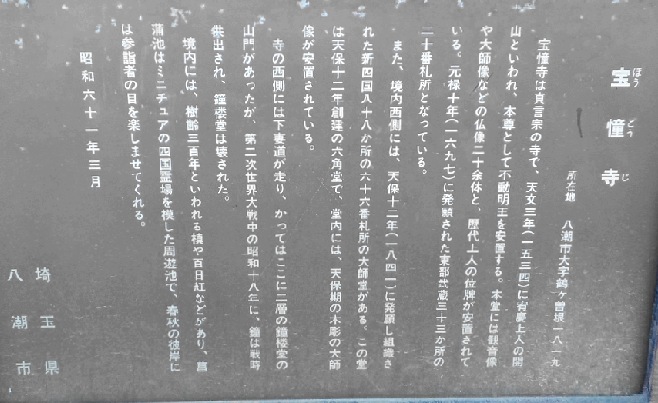 宝憧寺
ほうどうじ
所在地 八潮市大字鶴ヶ曽根一八一九
宝憧寺は真言宗の寺で、天文三年(一五三四)に 上人の開
山といわれ、本尊として不動明王を安置する。本堂には観音像
や大師像などの仏像二十余体と、歴代上人の位牌が安置されて
いる。元禄十年(一六九七)に発願された東部武蔵三十三か所の
二十番札所となっている。
また、境内西側には、天保十二年(一八四一)に発願し組織さ
れた新四国八十八か所の六十六番札所の大師堂がある。この堂
は天保十二年創建の六角堂で、堂内には、天保期の木彫の大師
像が安置されている。
寺の西側には下妻道が走り、かつてはここに二層の鐘楼堂の
山門があったが、第二次世界大戦中の昭和十八年に、鐘は戦時
供出され、鐘楼堂は壊された。
境内には、樹齢三百年といわれる槙や百日紅などがあり、菖
蒲池はミニチュアの四国霊場を模した周遊池で、春秋の彼岸に
は参詣者の目を楽しませてくれる。
昭和六十一年三月
埼玉県
八潮市